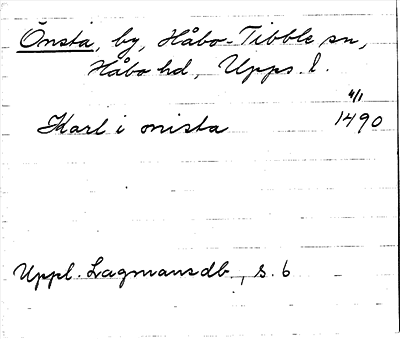 Önsta, by, Håbo-Tibble sn,
Håbo hd, Upps. l.
4/1
Karl i onista 1490
Uppl. Lagmansdb, s. 6